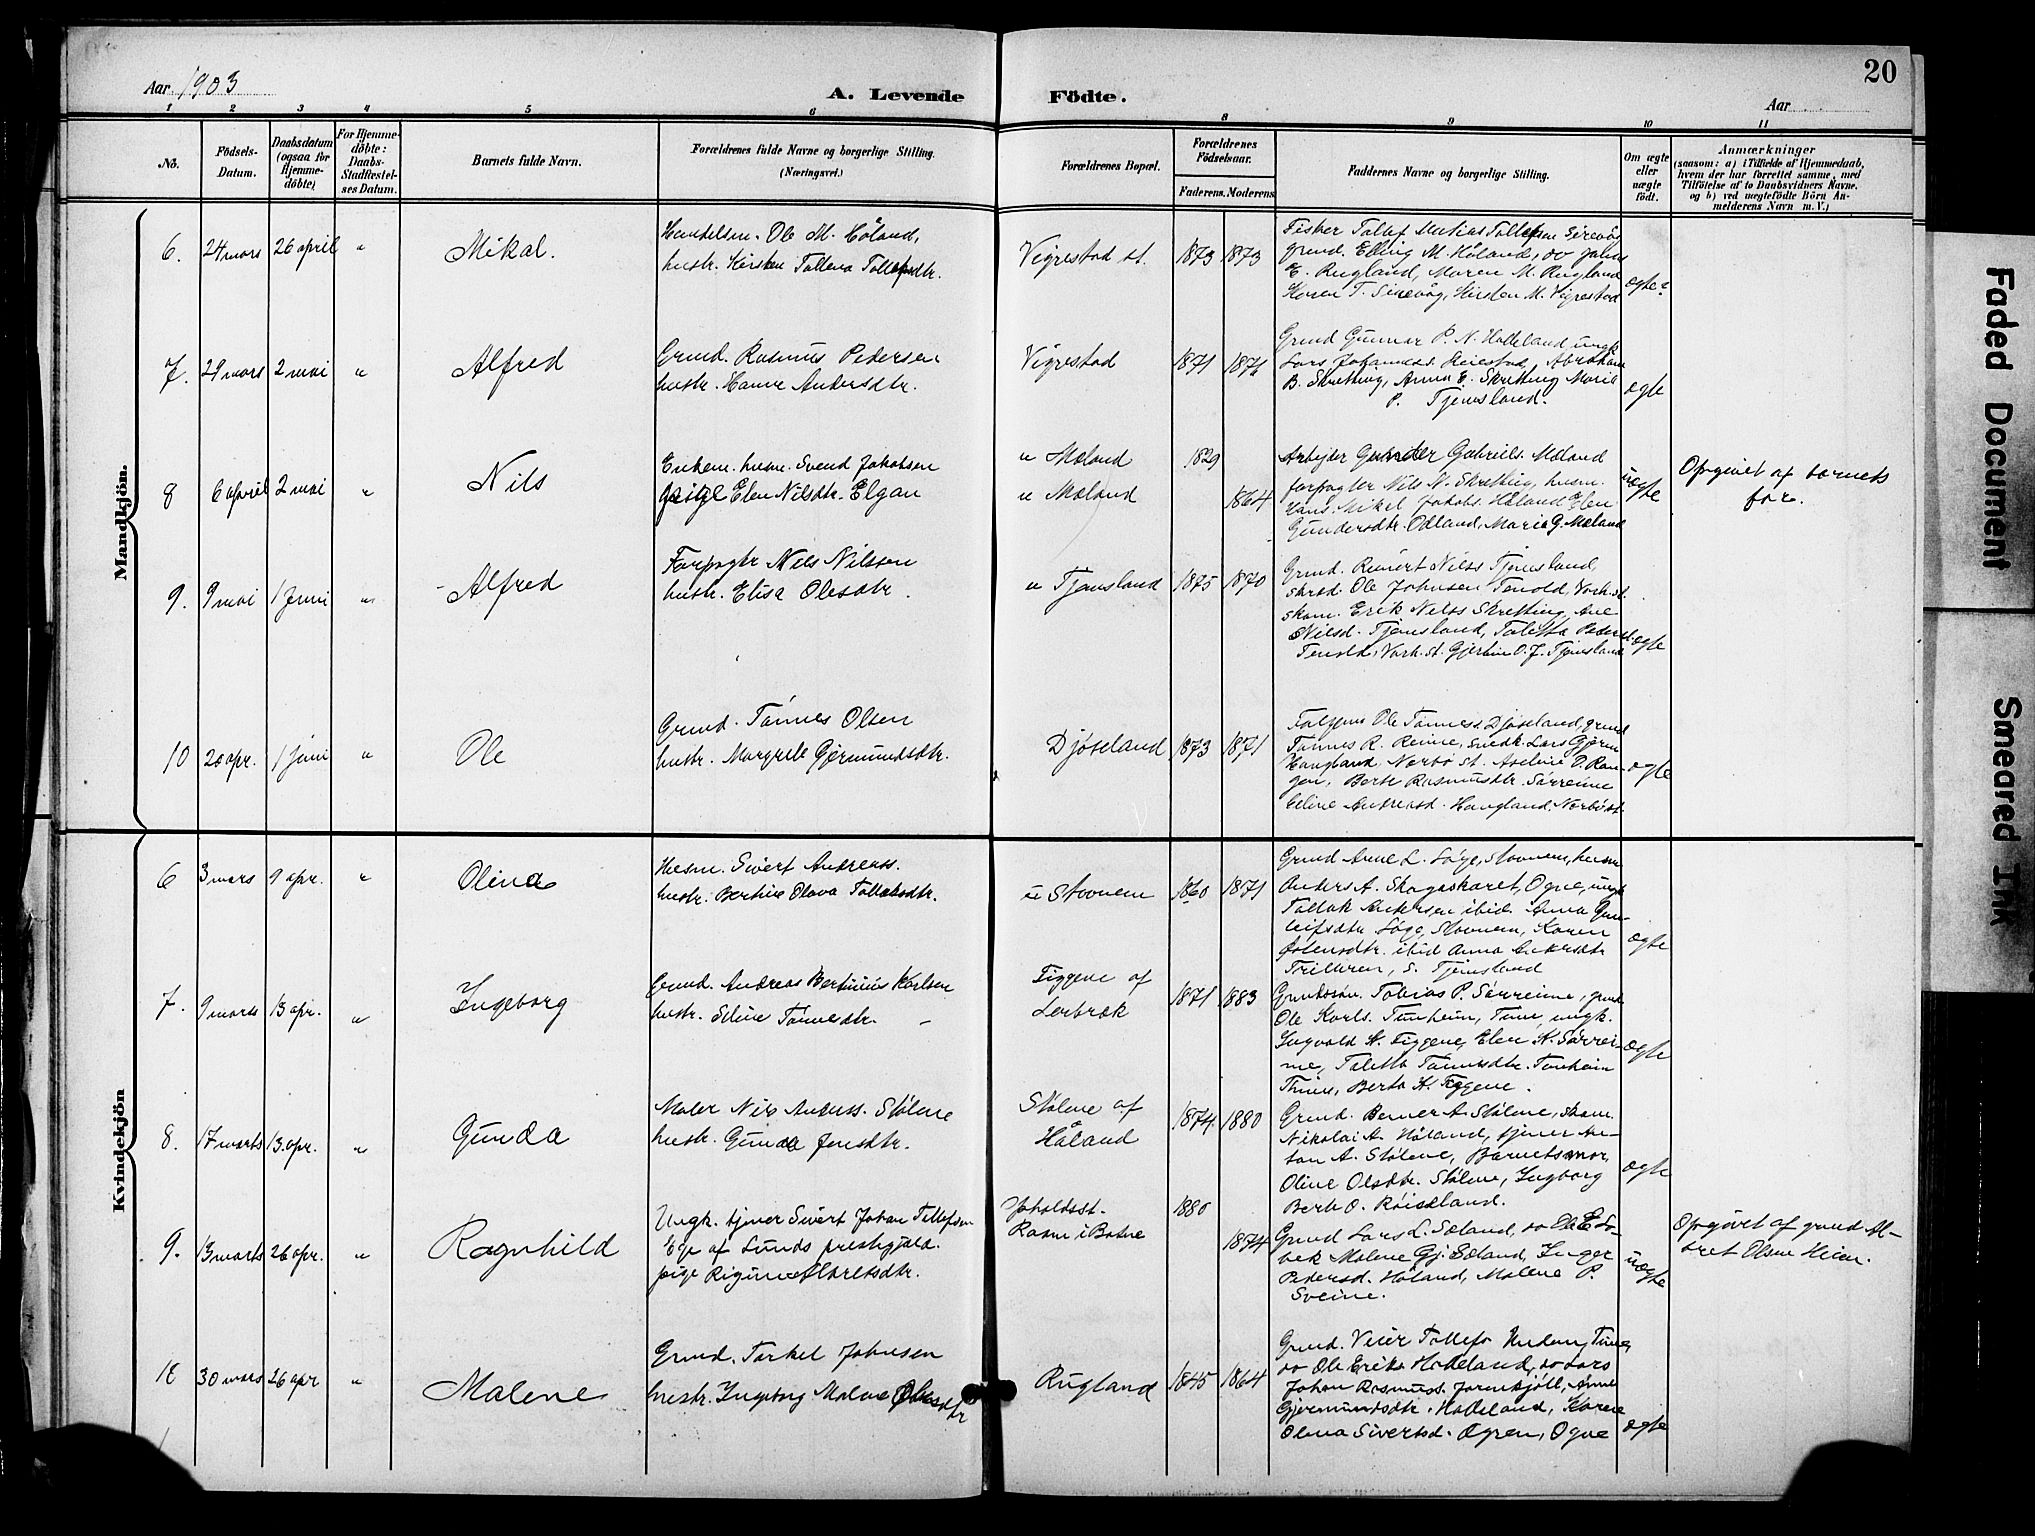 20
Aar 1903
A. Levende Födte.
Aar
1 2 3 4 5 6 8 9 10 11
No.
Födsels-
Datum.
Daabsdatum
(ogsaa for
Hjemme-
döbte)
For Hjemme-
döbte:
Daabs-
Stadfæstel-
ses Datum.
Barnets fulde Navn.
Forældrenes fulde Navne og borgerlige Stilling.
(Næringsvei.)
Forældrenes Bopæl.
Forældrenes
Födselsaar.
Faderens. Moderens.
Faddernes Navne og borgerlige Stilling.
Om ægte
eller
uægte
födt.
Anmærkninger
(saasom: a) i Tilfælde af Hjemmedaab,
hvem der har forrettet samme, med
Tilföielse af to Daabsvidners Navne.
og b) ved uægtefödte Börn An-
melderens Navn m. V.)
Mandkjön.
6. 24 mars 26 april "
Mikal.
Handelsm. Ole M. Höland,
hustr. Kirsten Tallena Tollefsdtr.
Vigrestad st. 1873 1873
Fisker Tollef Matias Tollefsen Sirevåg
grund. Elling M. Höland, do Johs
E. Rugland, Maren M. Rugland
Karen T. Sirevåg, Kirsten M. Vigrestad
ægte
7. 29 mars 2 mai "
Alfred
Grund. Rasmus Pedersen
hustr. Hanne Andersdtr.
Vigrestad 1871 1871
Grund Gunnar P. N. Hadeland, ungk
Lars Johanness. Reiestad, Abraham
B. Skretting, Anna E. Skretting Marie
P. Tjemsland.
ægte
8 6 april 2 mai "
Nils
Enkem. husm. Svend Jakobsen
pige Elen Nilsdtr. Elgan
u Mæland 1829
u Mæland 1864
Arbejder Gunder Gabriels. Mæland
forpagter Nils N. Skretting, husm.
Hans Mikel Jakobs. Håland Elen
Gundersdtr. Odland, Marie G. Mæland
uægte
Opgivet af barnets
far.
9. 9 mai 1 Juni "
Alfred
Forpagtr Nils Nilssen
hustr. Elisa Olesdtr.
u Tjemsland 1875 1870
Grund. Reinert Nilss Tjemsland,
skræd. Ole Johnsen Tenold, Varh. st.
skom. Erik Nilss Skretting, Ane
Nilsd. Tjemsland, Taletta Pedersd.
Tenold, Varh. st. Gjertine O. J. Tjemsland
ægte
10 20 apr. 1 juni "
Ole
Grund. Tönnes Olsen
hustr. Margrete Gjermundsdtr.
Djöseland 1873 1871
Ole Tönness. Djöseland, grund
Tönnes R. Reime, snedk. Lars Gjerm
Haugland, Nærbö st. Aseline O. Ran-
gen, Berte Rasmusdtr. Sörreime
Eline Andreasd. Haugland, Nærböst.
ægte
Kvindekjön
6 3 mars 9 apr. "
Olina
Husm. Sivert Andreass.
hustr. Bertine Olava Tollaksdtr.
u Stovnem 1860 1871
Grund Arne L. Söge, Stovnem, husm
Anders A. Skogaskaret, Ogne, ungk
Tollak Andersen ibid. Anna Gun-
leifsdtr Söge, Stovnem, Karen
ibid Anna Andersdtr
S. Tjemsland
ægte
7. 9 mars 13 apr. "
Ingeborg
Grund. Andreas Bertinius Karlsen
hustr. Seline Tönnesdtr.
Tiggene af
Lerbræk
1871 1883
Gaardssön. Tobias P. Sörreime, grund
Ole Karls. Tunheim, Time, ungk.
Ingvald K. Tiggene, Elen K. Sörrei-
me, Taletta Tönnesdtr. Tunheim
Thime, Berta K. Tiggene.
ægte
8. 17 marts 13. apr. "
Gunda
Maler Nils Anderss. Stölene
hustr. Gunda Jensdtr.
Stölene af
Håland
1874. 1880
Grund. Berner A. Stölene, skom.
Nikolai A. Höland, tjener An-
ton A. Stölene, Barnets mor,
Oline Olsdtr. Stölene, Ingborg
Berte O. Röiseland.
ægte
9. 13 marts 26 apr. "
Ragnhild
Ungk. tjener Sivert Johan Tollefsen
Ege af Lunds prestegjæld.
pige Albretsdtr.
Rasm i Botne
1880
1874
Grund Lars L. Sæland, do Ole E. Lo-
bek Malene Gj. Sæland, Inger
Pedersd. Höland, Malene P.
Sveine.
uægte
Opgivet af grund Al-
bret Olsen Heim.
10 30 mars 26 apr "
Malene
Grund. Torkel Johnsen
hustr. Ingeborg Malene Olesdtr
Rugland 1845 1864
Grund. Veier Tollefs Undem, Time,
do Ole Eriks Hadeland, do Lars
Johan Rasmuss. Jernkjöll, Anne
Gjermundsdtr. Hadeland, Karen
Olena Sivertsd. Ogren, Ogne
ægte
Faded Document
Smeared Ink